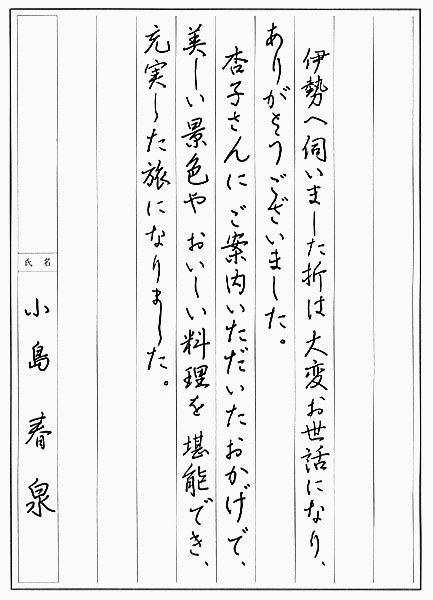 伊勢へ伺いました折は大変お世話になり、
ありがとうございました。
杏子さんにご案内いただいたおかげで、
美しい景色やおいしい料理を堪能でき、
充実した旅になりました。
氏名
小島春泉